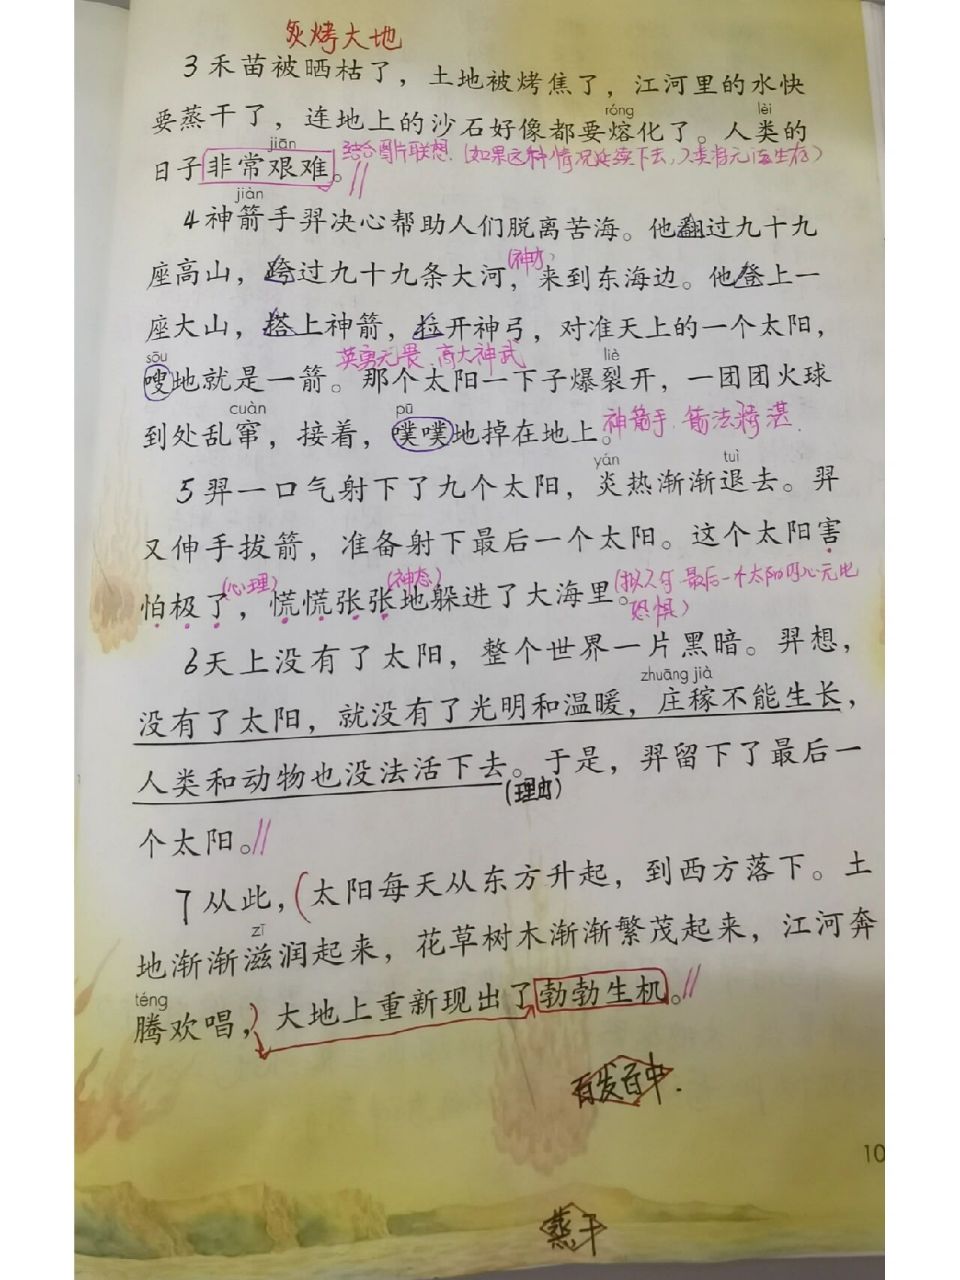 炙烤大地
3 禾苗被晒枯了，土地被烤焦了，江河里的水快
róng lèi
要蒸干了，连地上的沙石好像都要熔化了。人类的
jiān 结合图片联想.(如果这种情况延续下去,人类将无法生存)
日子非常艰难。//
jiàn
4 神箭手羿决心帮助人们脱离苦海。他翻过九十九
座高山，跨过九十九条大河，来到东海边。他登上一
座大山，搭上神箭，拉开神弓，对准天上的一个太阳，
sōu 英勇无畏、高大神武 liè
嗖地就是一箭。那个太阳一下子爆裂开，一团团火球
cuàn pū
到处乱窜，接着，噗噗地掉在地上。神箭手、箭法精湛.
yán tuì
5 羿一口气射下了九个太阳，炎热渐渐退去。羿
又伸手拔箭，准备射下最后一个太阳。这个太阳害
(心理) (神态) 最后一个太阳内心无比
怕极了，慌慌张张地躲进了大海里。恐惧)
6 天上没有了太阳，整个世界一片黑暗。羿想，
zhuāng jià
没有了太阳，就没有了光明和温暖，庄稼不能生长，
人类和动物也没法活下去。于是，羿留下了最后一
(理由)
个太阳。//
7 从此，(太阳每天从东方升起，到西方落下。土
zī
地渐渐滋润起来，花草树木渐渐繁茂起来，江河奔
téng
腾欢唱，)大地上重新现出了勃勃生机。//
百发百中.
10
蒸干